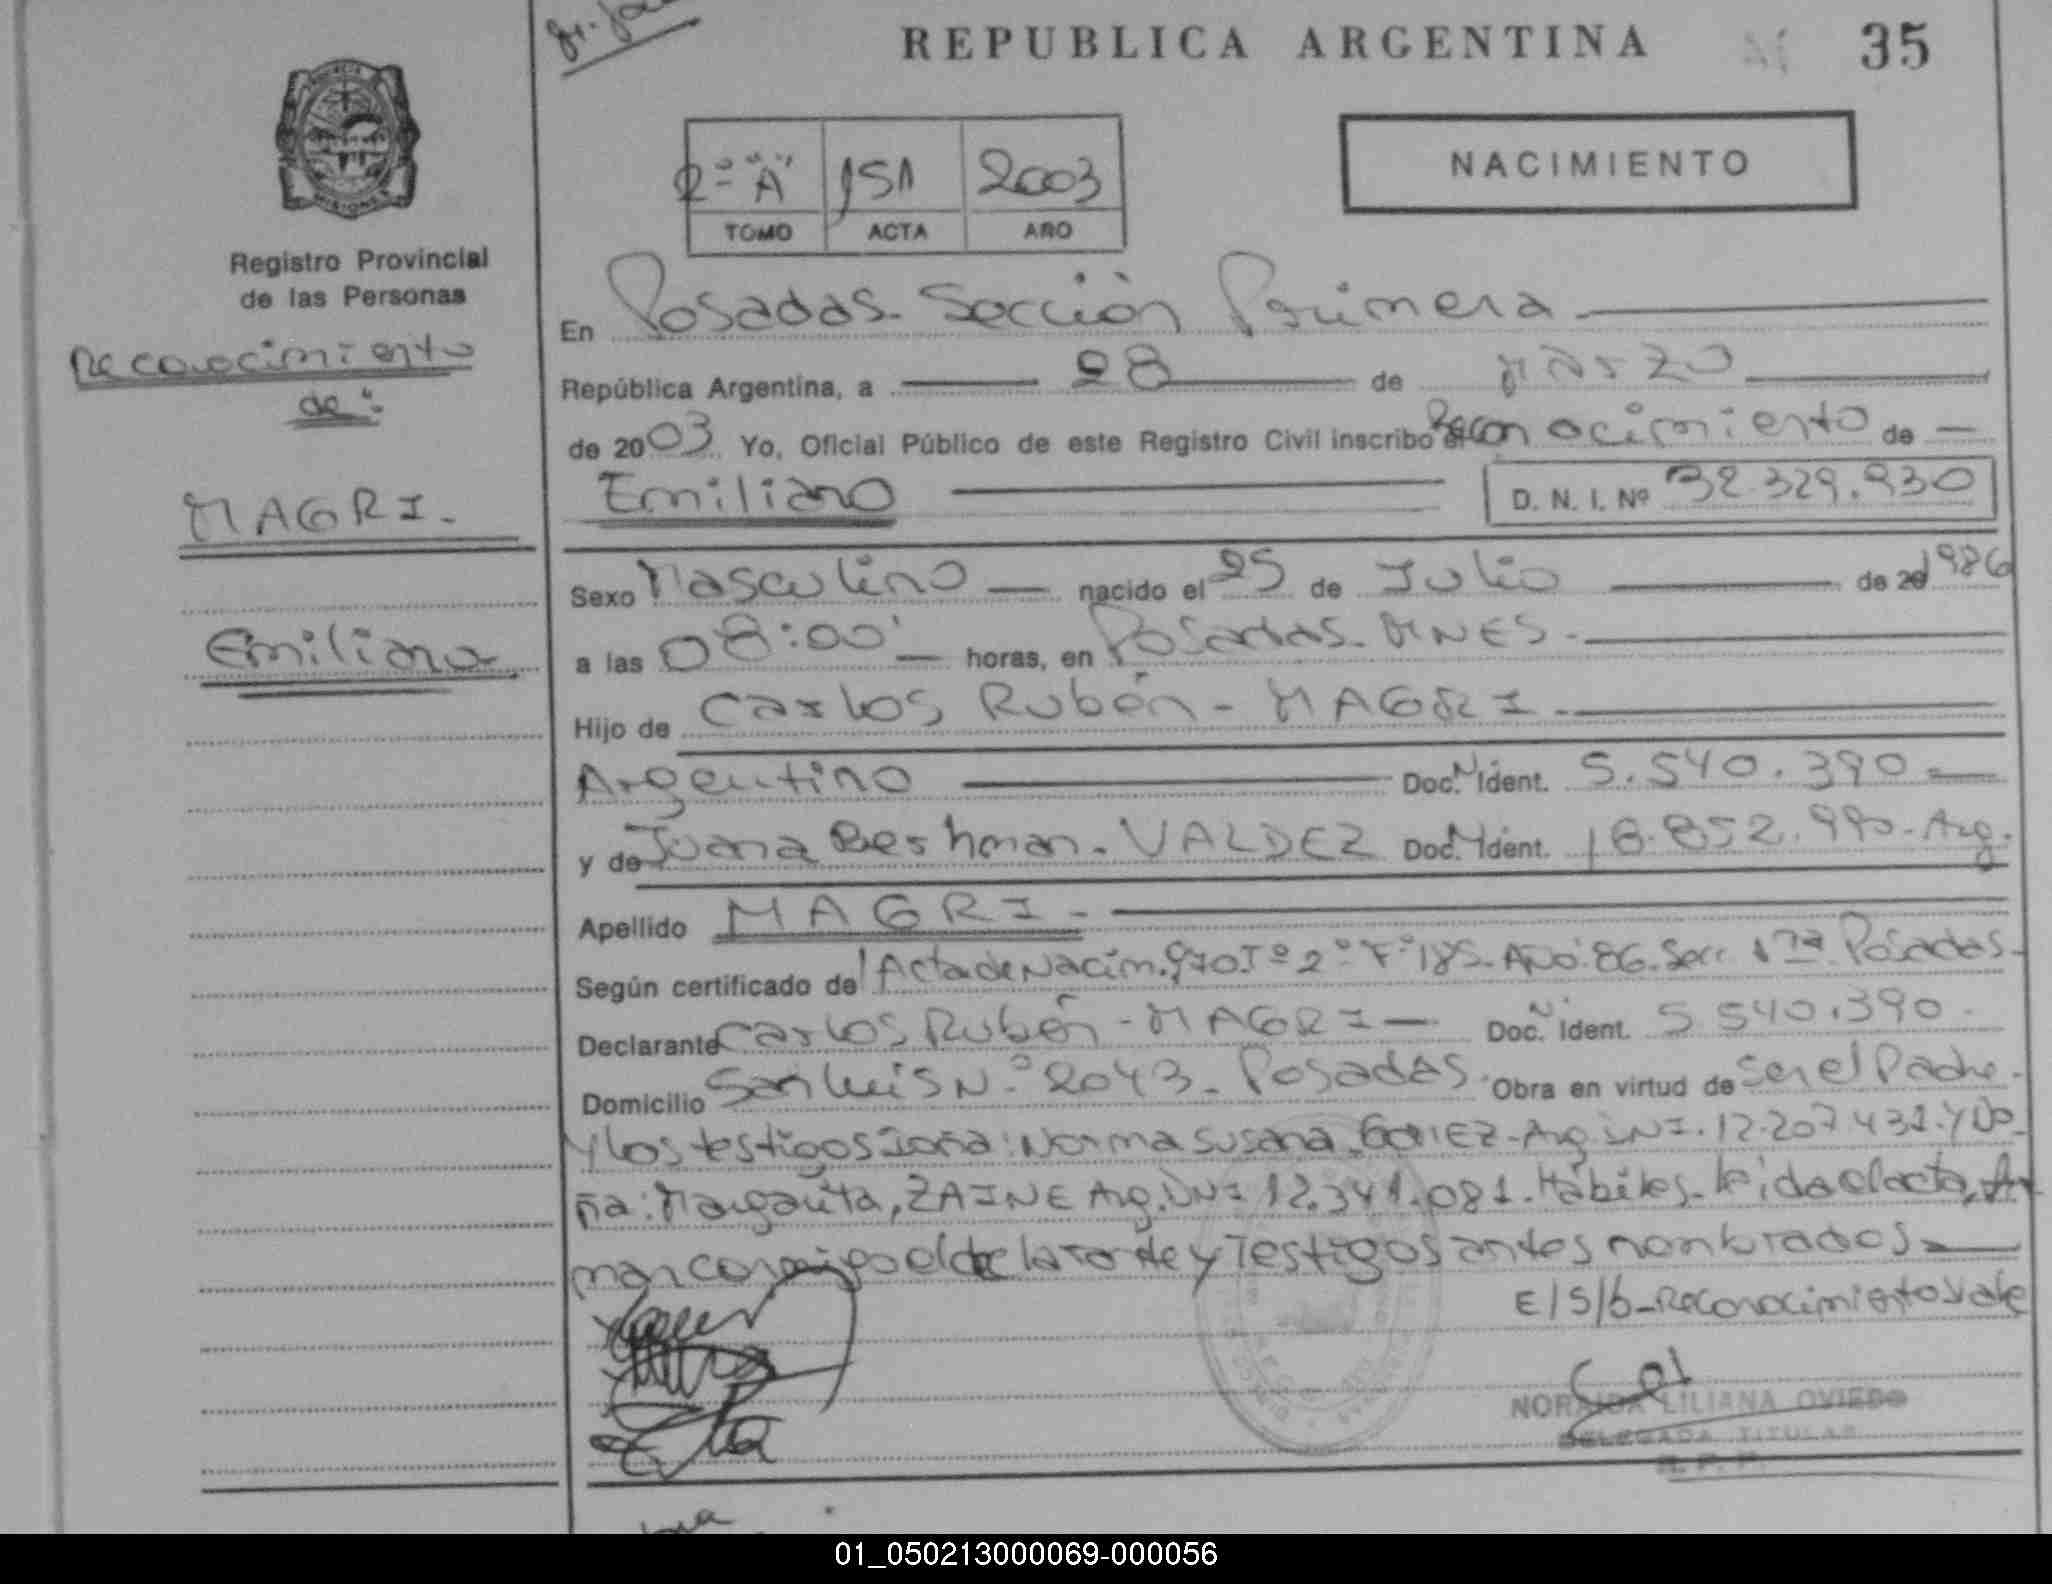 REPUBLICA ARGENTINA 35
2º "A" 151 2003
TOMO ACTA AÑO
NACIMIENTO
MISIONES
Registro Provincial
de las Personas
Reconocimiento
de:
MAGRI.
Emiliano
En Posadas. Sección Primera
República Argentina, a 28 de Marzo
de 2003 Yo, Oficial Público de este Registro Civil inscribo el Reconocimiento de
Emiliano D. N. I. Nº 32.329.930
Sexo Masculino nacido el 25 de Julio de 20 1986
a las 08:00' horas, en Posadas. MNES.
Hijo de Carlos Rubén - MAGRI.
Argentino Doc. Ident. 5.540.390
y de Juana VALDEZ Doc. Ident. 18.852.990. Arg.
Apellido MAGRI.
Según certificado de Acta de Nacim. 970. Tº 2º Fº 185. Año: 86. Secc. 1ra. Posadas
Declarante Carlos Rubén - MAGRI Doc. Ident. 5.540.390.
Domicilio San Luis N.º 2043. Posadas. Obra en virtud de Ser el Padre.
y los testigos Doña: Norma Susana. Arg. DNI. 12.207.431. y Do
ña: Margarita, ZAINE Arg. DNI 12.341.081. Hábiles. leída el acta, fir
man conmigo el declarante y Testigos antes nombrados
E/S/b-Reconocimiento vale
NORAIDA LILIANA OVIEDO
DELEGADA TITULAR
R. P. P.
01_050213000069-000056